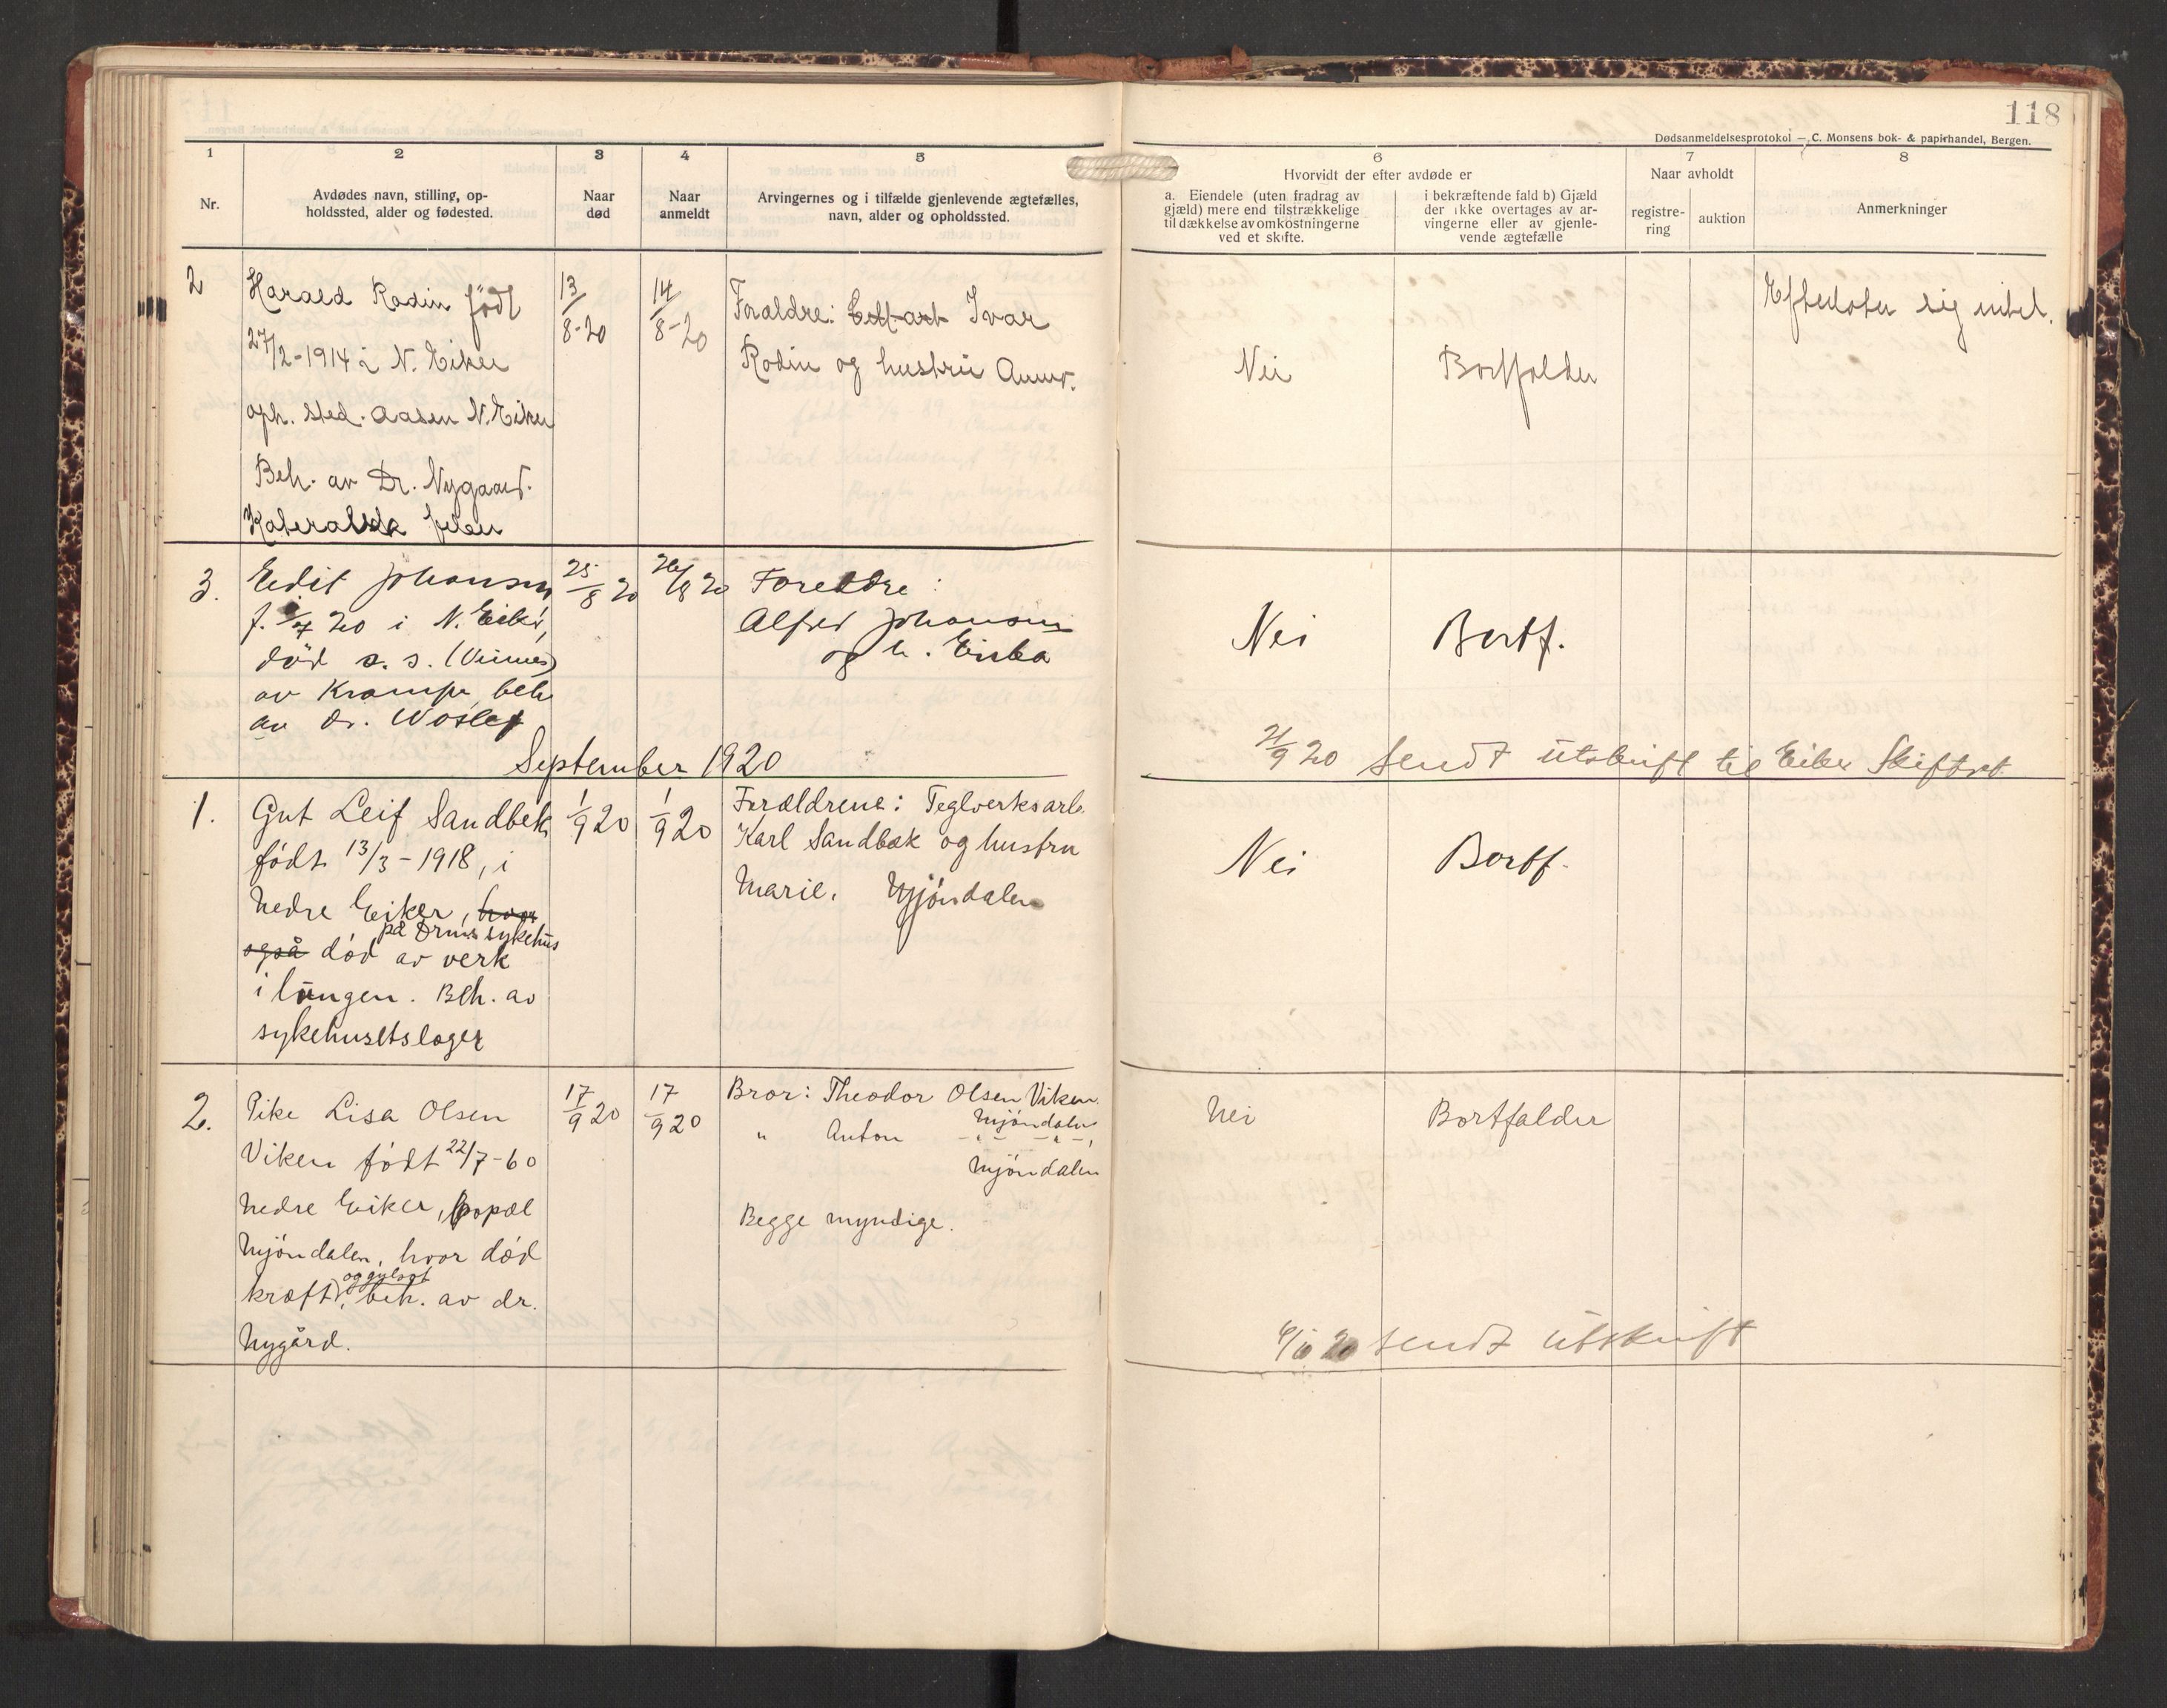 118
Dødsanmeldelsesprotokol — C. Monsens bok- & papirhandel, Bergen.
1
Nr.
2
Avdødes navn, stilling, op-
holdssted, alder og fødested.
3
Naar
død
4
Naar
anmeldt
5
Arvingernes og i tilfælde gjenlevende ægtefælles,
navn, alder og opholdssted.
6
Hvorvidt der efter avdøde er
a. Eiendele (uten fradrag av
gjæld) mere end tilstrækkelige
til dækkelse av omkostningerne
ved et skifte.
i bekræftende fald b) Gjæld
der ikke overtages av ar-
vingerne eller av gjenle-
vende ægtefælle
7
Naar avholdt
registre-
ring
auktion
8
Anmerkninger
2
Harald Rodin født
27/2-1914 i N. Eiker
oph. sted. Aasen N. Eiker
Beh. av Dr. Nygaard.
13/8-20
14/8-20
Foraldre: Ivar
Rodin og hustru
Nei
Bortfalder
Efterlater sig intet.
3.
Edit Johansen
f. /7 20 i N. Eiker,
død s. s.
av Krampe, beh
av dr.
25/8 20
26/8 20
Foreldre:
Alfred Johansen
og h.
Nei
Bortf.
September 1920
21/9 20 sendt utskrift til Eiker Skifteret
1.
Gut Leif Sandbek
født 13/3-1918, i
Nedre Eiker, hvor
på Drms sykehus
også død av verk
i lungen. Beh. av
sykehusetslæger
1/9 20
1/9 20
Forældrene: Teglverksarb.
Karl Sandbæk og hustru
Marie. Mjöndalen
Nei
Bortf.
2.
Pike Lisa Olsen
Viken født 22/7-60
Nedre Eiker, bopæl
Mjöndalen, hvor död
og gulsot
kræft, beh. av dr.
Nygård.
17/9 20
17/9 20
Bror: Theodor Olsen Viken
Mjöndalen
" Anton -"- -"-,
Mjöndalen
Begge myndige.
Nei
Bortfalder
4/10 20 sendt utskrift